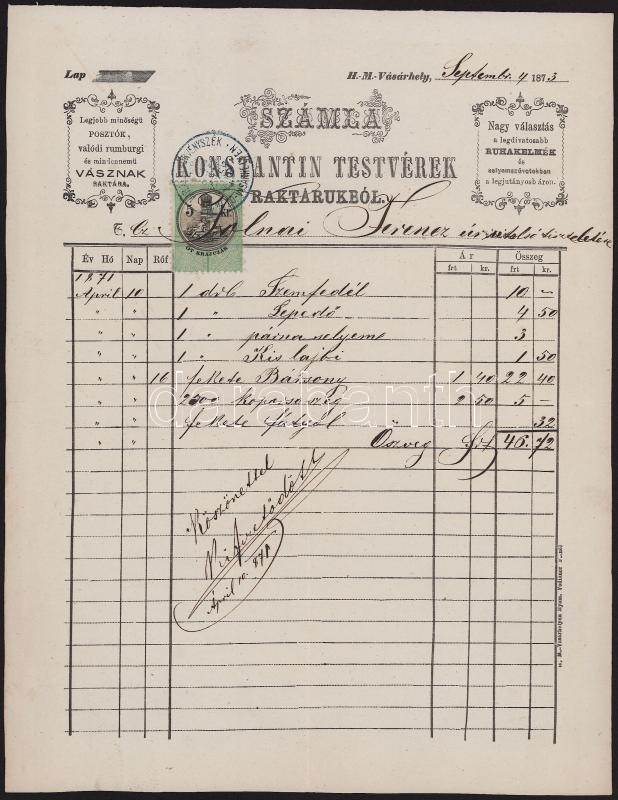 Lap
H.-M.-Vásárhely, Septembr. 4 1873
Legjobb minőségű
POSZTÓK,
valódi rumburgi
és mindennemű
VÁSZNAK
RAKTÁRA.
SZÁMLA
KONSTANTIN TESTVÉREK
RAKTÁRUKBÓL.
Nagy választás
a legdivatosabb
RUHAKELMÉK
és
selyemszövetekben
a legjutányosb áron.
5 Kr
ÖT KRAJCZÁR
T. Cz. Ferencz úr
Év Hó Nap Rőf Ár Összeg
frt kr. frt kr.
1871
April 10 1 drb Szemfedél 10 —
" " 1 " Lepedő 4 50
" " 1 " párna selyem 3
" " 1 " Kis lajbi 1 50
" " 16 fekete Bársony 1 40 22 40
" " 2500 koporsó szeg 2 50 5 —
" " fekete fátyol 32
" " Öszveg Ft 46. 72
Köszönettel
Kifizetődött
April 10. 871
darabanth